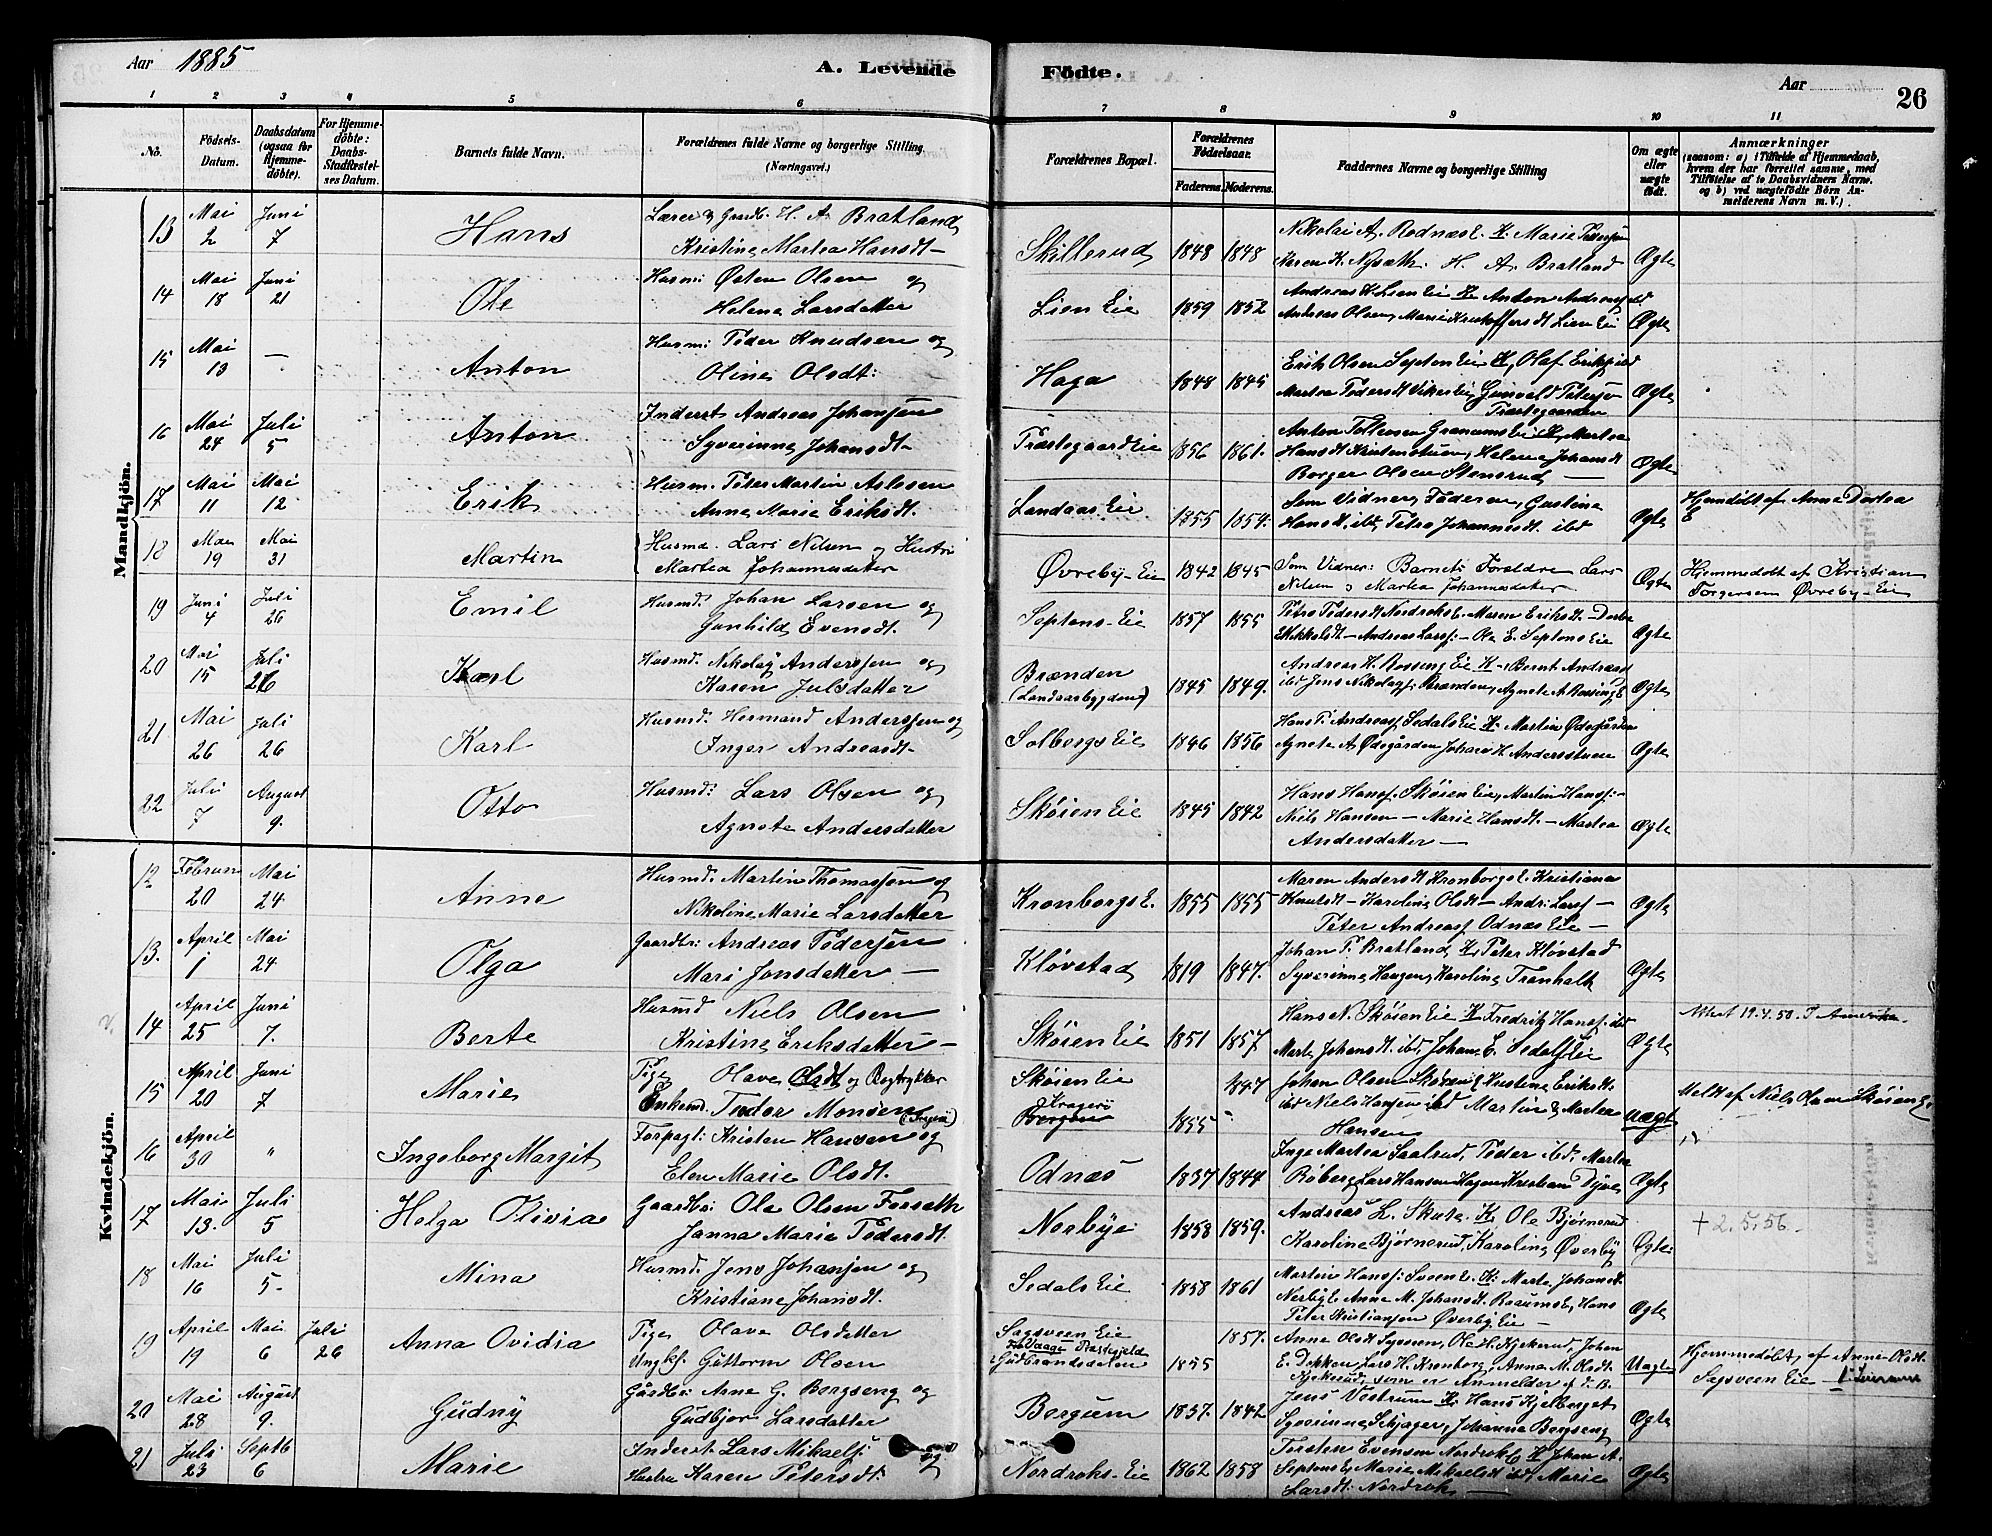 Aar 1885
A. Levende Födte.
Aar
26
1 2 3 4 5 6 7 8 9 10 11
No.
Födsels-Datum.
Daabsdatum (ogsaa for Hjemme-döbte).
For Hjemme-döbte: Daabs-Stadfæstel-ses Datum.
Barnets fulde Navn.
Forældrenes fulde Navne og borgerlige Stilling. (Næringsvei.)
Forældrenes Bopæl.
Forældrenes Födselsaar.
Faderens. Moderens.
Faddernes Navne og borgerlige Stilling
Om ægte eller uægte födt.
Anmærkninger
(saasom: a) i Tilfælde af Hjemmedaab, hvem der har forrettet samme, med Tilföielse af to Daabsvidners Navne. og b) ved uægtefödte Börn An-melderens Navn m. V.).
Mandkjön.
13 Mai 2 Juni 7 Hans
Lærer og Gaardb. H. A. Bratland
Kristine Martea Hansdt-
Skillerud 1848 1848
Nikolai A. Rodnæs E. K. Marie
Maren K. H. A. Bratland
Ægte
14 Mai 18 Juni 21 Ole
Husm: Østen Olsen og
Helene Larsdatter
Lien Eie 1859 1852
Andreas H. Lien Eie K. Anton ibd
Andreas Olsen, Marie Kristoffersdt Lien Eie
Ægte
15 Mai 13 — Anton
Husm: Peder Knudsen og
Oline Olsdt:
Haga 1848 1845
Erik Olsen Septon Eie K. Olaf ibd
Martea Pedersdt Eie Gunvald
Præstegaarden
Ægte
16 Mai 24 Juli 5 Anton
Inderst Andreas Johansen
Syverinne Johansdt-
Præstegaard Eie 1856 1861.
Anton Tollevsen Granums Eie K. Martea
Hansdt Helene Johansdt
Borger Olsen Stensrud —
Ægte
17 Mai 11 Mai 12 Erik
Husm. Peter Martin Aslesen
Anne Marie Eriksdt.
Landaas Eie 1855 1854.
Som Vidner, Faderen, Gustine
Hansdt ibd, Petra Johannesdt. ibd
Ægte
Hjemdøbt af Anne Dortea
18 Mai 19 Mai 31 Martin
Husmd. Lars Nilsen og Hustru
Martea Johannesdatter
Øvreby-Eie 1842 1845
Som Vidner: Barnets Foreldre Lars
Nilsen og Martea Johannesdatter
Ægte
Hjemmedøbt af Kristian
Torgersen Øvreby-Eie
19 Juni 4 Juli 26 Emil
Husmd. Johan Larsen og
Gunhild Evensdt.
Septons-Eie 1857 1855
Petra Pedersdt Nordroks E. Maren Eriksdt.
Andreas Larss.- Ole E. Septons Eie
Ægte
20 Mai 15 Juli 26 Karl
Husmd. Nikolay Anderssen og
Karen Julsdatter
Brænden (Landaasbygden) 1845 1849.
Andreas H. Rosseng Eie K- Bernt
ibd Jens Nikolays. Brænden, Agnete A Rosseng E
Ægte
21 Mai 26 Juli 26 Karl
Husmd. Hermand Anderssen og
Inger Andreasdt-
Solbergs Eie 1846 1856
Hans P. Andreass. Sedals Eie K. Martin Ødegården
Agnete A. Ødegården Johan H. Andersstuen
Ægte
22 Juli 7 August 9. Otto
Husmd: Lars Olsen og
Agnete Andersdatter
Skøien Eie 1845 1842
Hans Hanss: Skøien Eie, Martin Hanss:-
Niels Hansen — Marie Hansdt — Martea
Andersdatter —
Ægte
Kvindekjön.
12 Februar 20 Mai 24 Anne
Husmd. Martin Thomassen og
Nikoline Marie Larsdatter
Kronborgs E. 1855 1855
Maren Andersdt Kronborgs E. Kristiana
Knutsdt — Karoline Olsdt — Andr: Larss —
Peter Andreass Odnæs Eie —
Ægte
13. April 1 Mai 24 Olga
Gaardbr: Andreas Pedersen
Mari Jonsdatter —
Kløvstad 1819 1847.
Johan P. Bratland K. Peter Kløvstad
Syverinne Haugen, Karoline Tranhalt
Ægte
14 April 25 Juni 7. Berte
Husmd Niels Olsen
Kristine Eriksdatter —
Skøien Eie 1851 1857
Hans N. Skøien Eie K Fredrik Hanss. ibd
Marte Johansdt. ibd, Johan E. Sedals Eie
Ægte
Attest 19.4.50. I Amerika.
15 April 20 Juni 7 Marie
Pige Olave Olsdt og Bogtrykker
Enkem. Teodor Monsen
Skøien Eie
Kragerø
Bergen
1855 1847
Johan Olsen Skøien E Kristine Eriksdt.
ibd Niels Hansen ibd Martin & Martea
Hansen
Uægte
Meldt af Niels Olsen Skøien E.
16 April 30 " Ingeborg Margit
Forpagt: Kristen Hansen og
Elen Marie Olsdt.
Odnæs 1837 1844
Inge Martea Saalrud, Peder ibd. Martea
Røberg, Lars Hansen Hagen, Kristian Dyve
Ægte
17 Mai 13. Juli 5 Helga Olivia
Gaardbr: Ole Olsen Forsæth
Janna Marie Pedersdt.
Norbye 1858 1859.
Andreas L. Skute. K. Ole Bjørnerud
Karoline Bjørnerud, Karoline Øverby
Ægte.
+ 2.5.56.
18 Mai 16 Juli 5 Mina
Husmd. Jens Johansen og
Kristiane Johansdt.
Sedals Eie 1858 1861
Martin Hanss: Sveen E. K: Marte Johansdt.
Nerby E. Anne M. Johansdt. Raaums E, Hans
Peter Kristiansen Øverby Eie —
Ægte
19 April 19 Mai 6 Juli 26 Anna Ovidia
Pige Olave Olsdatter
Ungkf. Guttorm Olsen
Sagsveen Eie
Vaage Præstegjeld
Gudbrandsdalen
1855 1857.
Anne Olsdt Sagsveen, Ole H. Kjekerud, Johan
E. Dokken, Lars H. Kronborg, Anna M. Olsdt.
Kjekerud, som er Anmelder af d. B.
Uægte
Hjemmedøbt, af Anne Olsdt.
Sagsveen Eie —
20 Mai 28 August 9. Gudny
Gårdbr: Arne G. Bergseng og
Gudbjor Larsdatter
Bergum 1837. 1842
Jens Vestrum K. Hans Kjelberget
Syverinne Schjager, Johanna Bergseng
Ægte
21 Juli 23 Septb 6 Marie
Inderst Lars Mikaels: og
Hustru Karen Petersdt.
Nordroks-Eie 1862 1858
Torsten Evensen Nordrok E K Johan A.
Septons E, Marie Mikaelsdt ibd, Marie
Larsdt. Nordrok —
Ægte